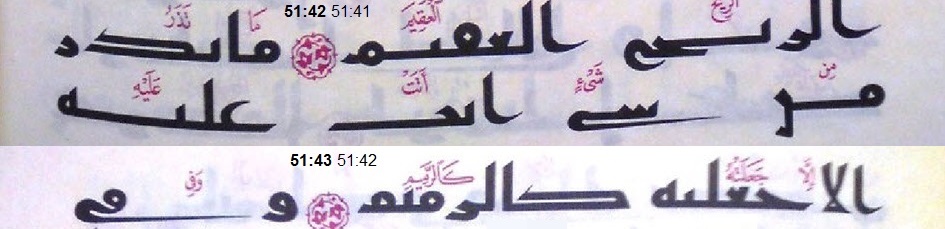 51:42 51:41
ٱلرِّيحَ ٱلْعَقِيمَ مَا تَذَرُ
الريح العقيم ما تذر
مِن شَىْءٍ أَتَتْ عَلَيْهِ
من شي اتت عليه
51:43 51:42
إِلَّا جَعَلَتْهُ كَٱلرَّمِيمِ وَفِى
الا جعلته كالرميم و في